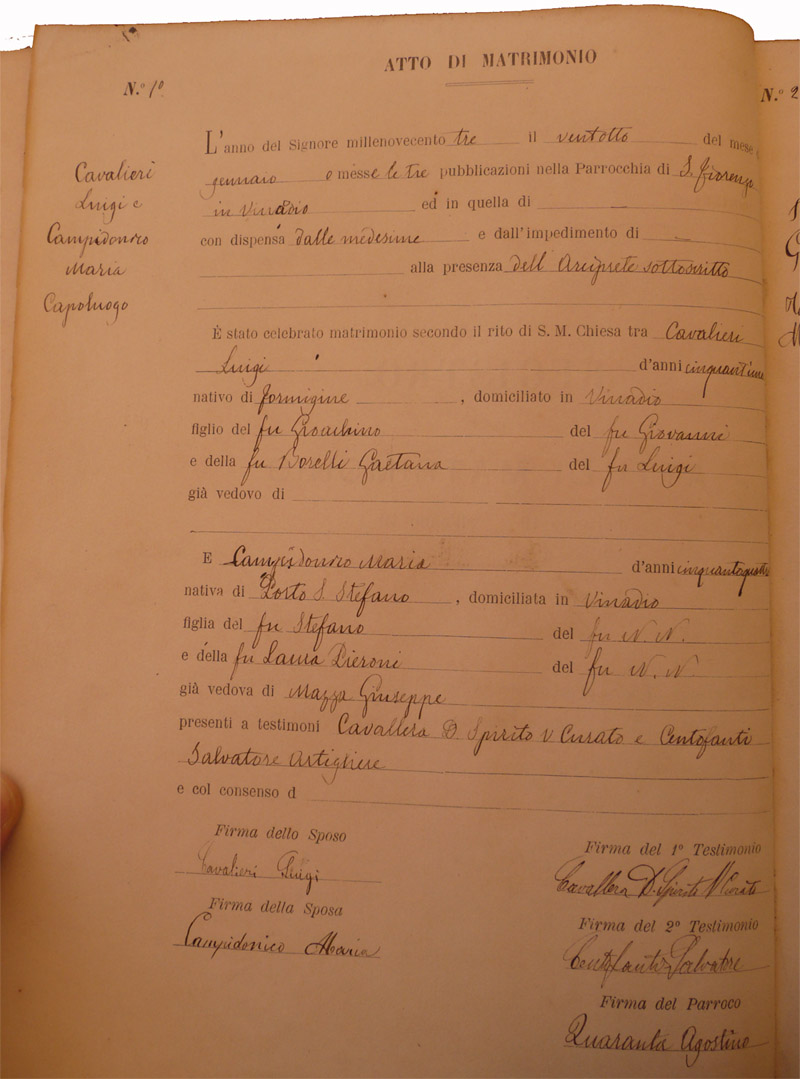 ATTO DI MATRIMONIO
N.º 1º
N.º 2
Cavalieri
Luigi e
Campidonico
Maria
Capoluogo
L'anno del Signore millenovecento tre il ventotto del mese
gennaio omesse le tre pubblicazioni nella Parrocchia di S. Fiorenzo
in Vinadio ed in quella di
con dispensa dalle medesime e dall'impedimento di
alla presenza dell'Arciprete sottoscritto
È stato celebrato matrimonio secondo il rito di S. M. Chiesa tra Cavalieri
Luigi d'anni cinquantuno
nativo di Formigine, domiciliato in Vinadio
figlio del fu Gioachino del fu Giovanni
e della fu Borelli Gaetana del fu Luigi
già vedovo di
E Campidonico Maria d'anni cinquantaquattro
nativa di Porto S. Stefano, domiciliata in Vinadio
figlia del fu Stefano del fu N. N.
e della fu Laura Pieroni del fu N. N.
già vedova di Mazza Giuseppe
presenti a testimoni Cavallera D Spirito V Curato e Centofanti
Salvatore Artigliere
e col consenso d
Firma dello Sposo
Cavalieri Luigi
Firma della Sposa
Campidonico Maria
Firma del 1º Testimonio
Cavallera D. Spirito V Curato
Firma del 2º Testimonio
Centofanti Salvatore
Firma del Parroco
Quaranta Agostino